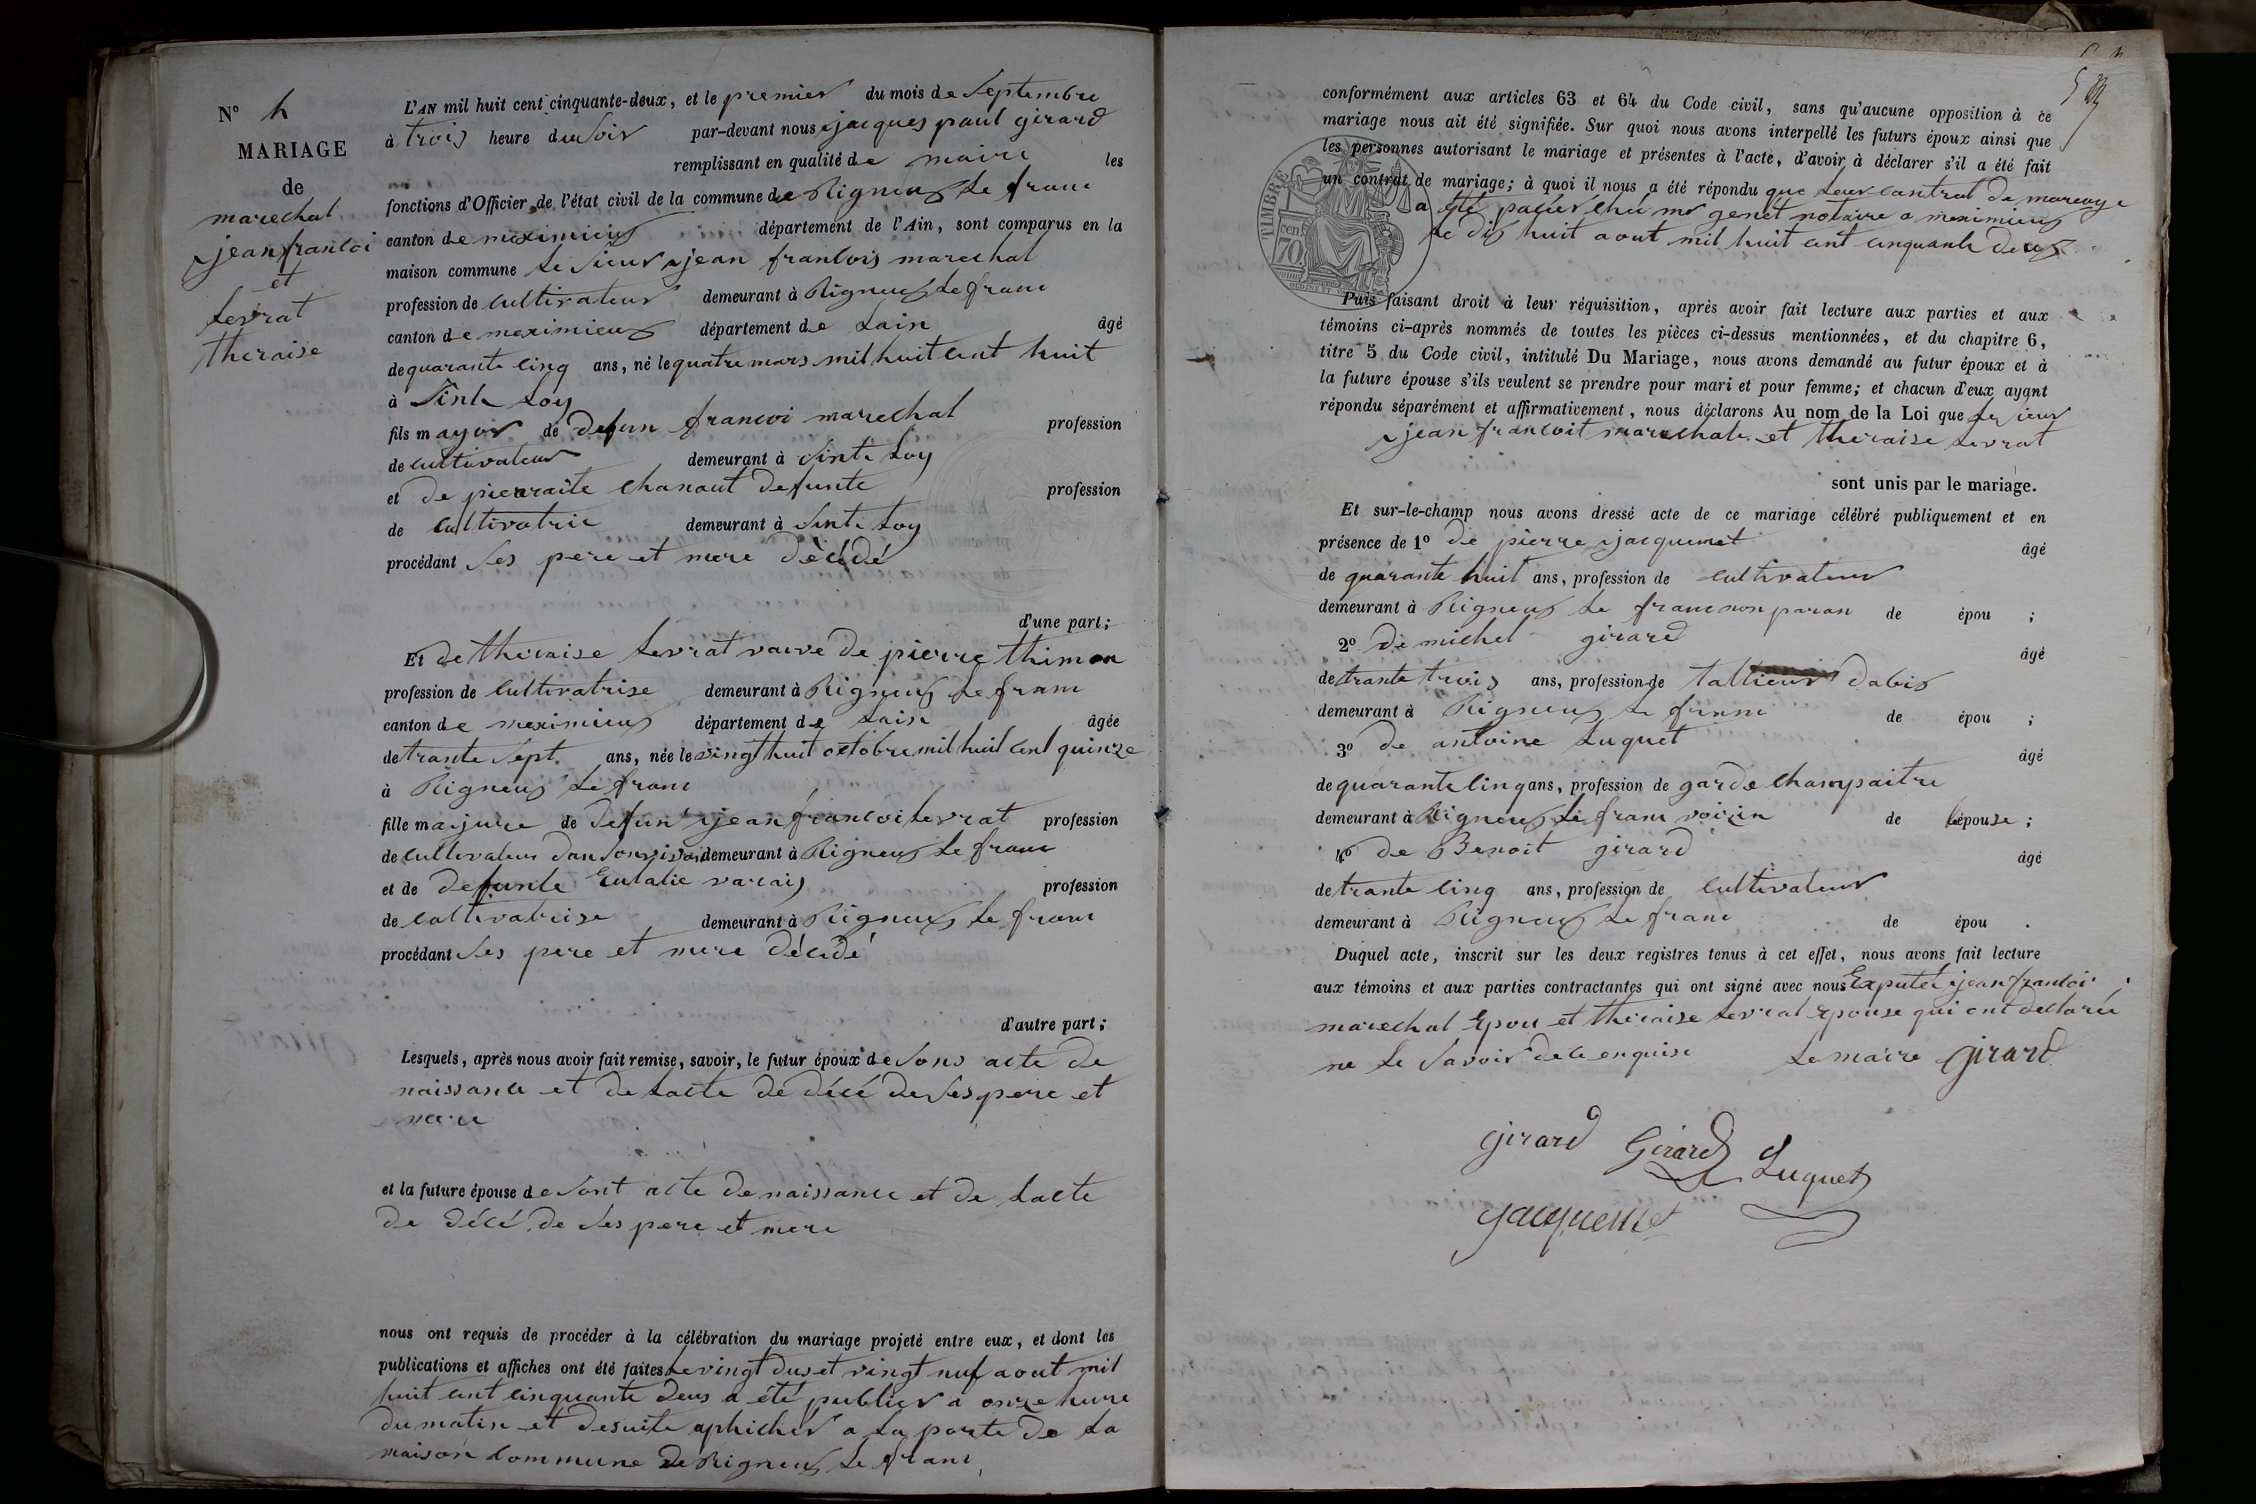 N° 4
MARIAGE
de
marechal
jean francoi
et
levrat
theraise
L'AN mil huit cent cinquante-deux, et le premier du mois de Septembre
à trois heure du Soir par-devant nous jacques paul girard
remplissant en qualité de maire les
fonctions d'Officier de l'état civil de la commune de Rigneux le franc
canton de meximieux département de l'Ain, sont comparus en la
maison commune le Sieur jean francois marechal
profession de cultivateur demeurant à Rigneux le franc
canton de meximieux département de Lain âgé
de quarante cinq ans, né le quatre mars mil huit cent huit
à Sinte Loy
fils mayor de defun francoi marechal profession
de cultivateur demeurant à Sinte Loy
et de pierraite chanaut defunte profession
de cultivatrice demeurant à Sinte Loy
procédant Ses pere et mere décédé
d'une part;
Et de theraise levrat vaeve de pierre thimon
profession de cultivatrise demeurant à Rigneux le franc
canton de meximieux département de Lain âgée
de trante Sept ans, née le vingt huit octobre mil huit cent quinze
à Rigneux le franc
fille majure de defun jean francoi levrat profession
de cultivateur dan Son vivan demeurant à Rigneux le franc
et de defunte Eulalie varais profession
de cultivatrise demeurant à Rigneux le franc
procédant Ses pere et mere décédé
d'autre part;
Lesquels, après nous avoir fait remise, savoir, le futur époux de Sons acte de
naissance et de lacte de décé de Ses pere et
mere
et la future épouse de Sont acte de naissance et de lacte
de décé de Ses pere et mere
nous ont requis de procéder à la célébration du mariage projeté entre eux, et dont les
publications et affiches ont été faites le vingt dus et vingt nuf aout mil
huit cent cinquante deus a été publier a onze hure
du matin et desuite aphicher a la porte de la
maison commune de Rigneux le franc
conformément aux articles 63 et 64 du Code civil, sans qu'aucune opposition à ce
mariage nous ait été signifiée. Sur quoi nous avons interpellé les futurs époux ainsi que
les personnes autorisant le mariage et présentes à l'acte, d'avoir à déclarer s'il a été fait
un contrat de mariage; à quoi il nous a été répondu que leur contrat de mareage
a été paser ché mr genet notaire a meximieux
le dix huit aout mil huit cent cinquante deux
TIMBRE
70 cen
Puis faisant droit à leur réquisition, après avoir fait lecture aux parties et aux
témoins ci-après nommés de toutes les pièces ci-dessus mentionnées, et du chapitre 6,
titre 5 du Code civil, intitulé Du Mariage, nous avons demandé au futur époux et à
la future épouse s'ils veulent se prendre pour mari et pour femme; et chacun d'eux ayant
répondu séparément et affirmativement, nous déclarons Au nom de la Loi que le Sieur
jean francoit marechal et theraise levrat
sont unis par le mariage.
Et sur-le-champ nous avons dressé acte de ce mariage célébré publiquement et en
présence de 1° de pierre jacquemet âgé
de quarante huit ans, profession de cultivateur
demeurant à Rigneux le franc non paran de épou ;
2° de michel girard âgé
de trante trois ans, profession de tallieur dabis
demeurant à Rigneux le franc de épou ;
3° de antoine Luquet âgé
de quarante cinq ans, profession de garde champaitre
demeurant à Rigneux le franc voizin de lépouse ;
4° de Benoit girard âgé
de trante cinq ans, profession de cultivateur
demeurant à Rigneux le franc de épou .
Duquel acte, inscrit sur les deux registres tenus à cet effet, nous avons fait lecture
aux témoins et aux parties contractantes qui ont signé avec nous Exputér jean francoi
marechal Epou et theraise levrat Epouse qui ont declarée
ne le Savoir de ce enquise Le maire Girard
girard Girard Luquet
jacquemet